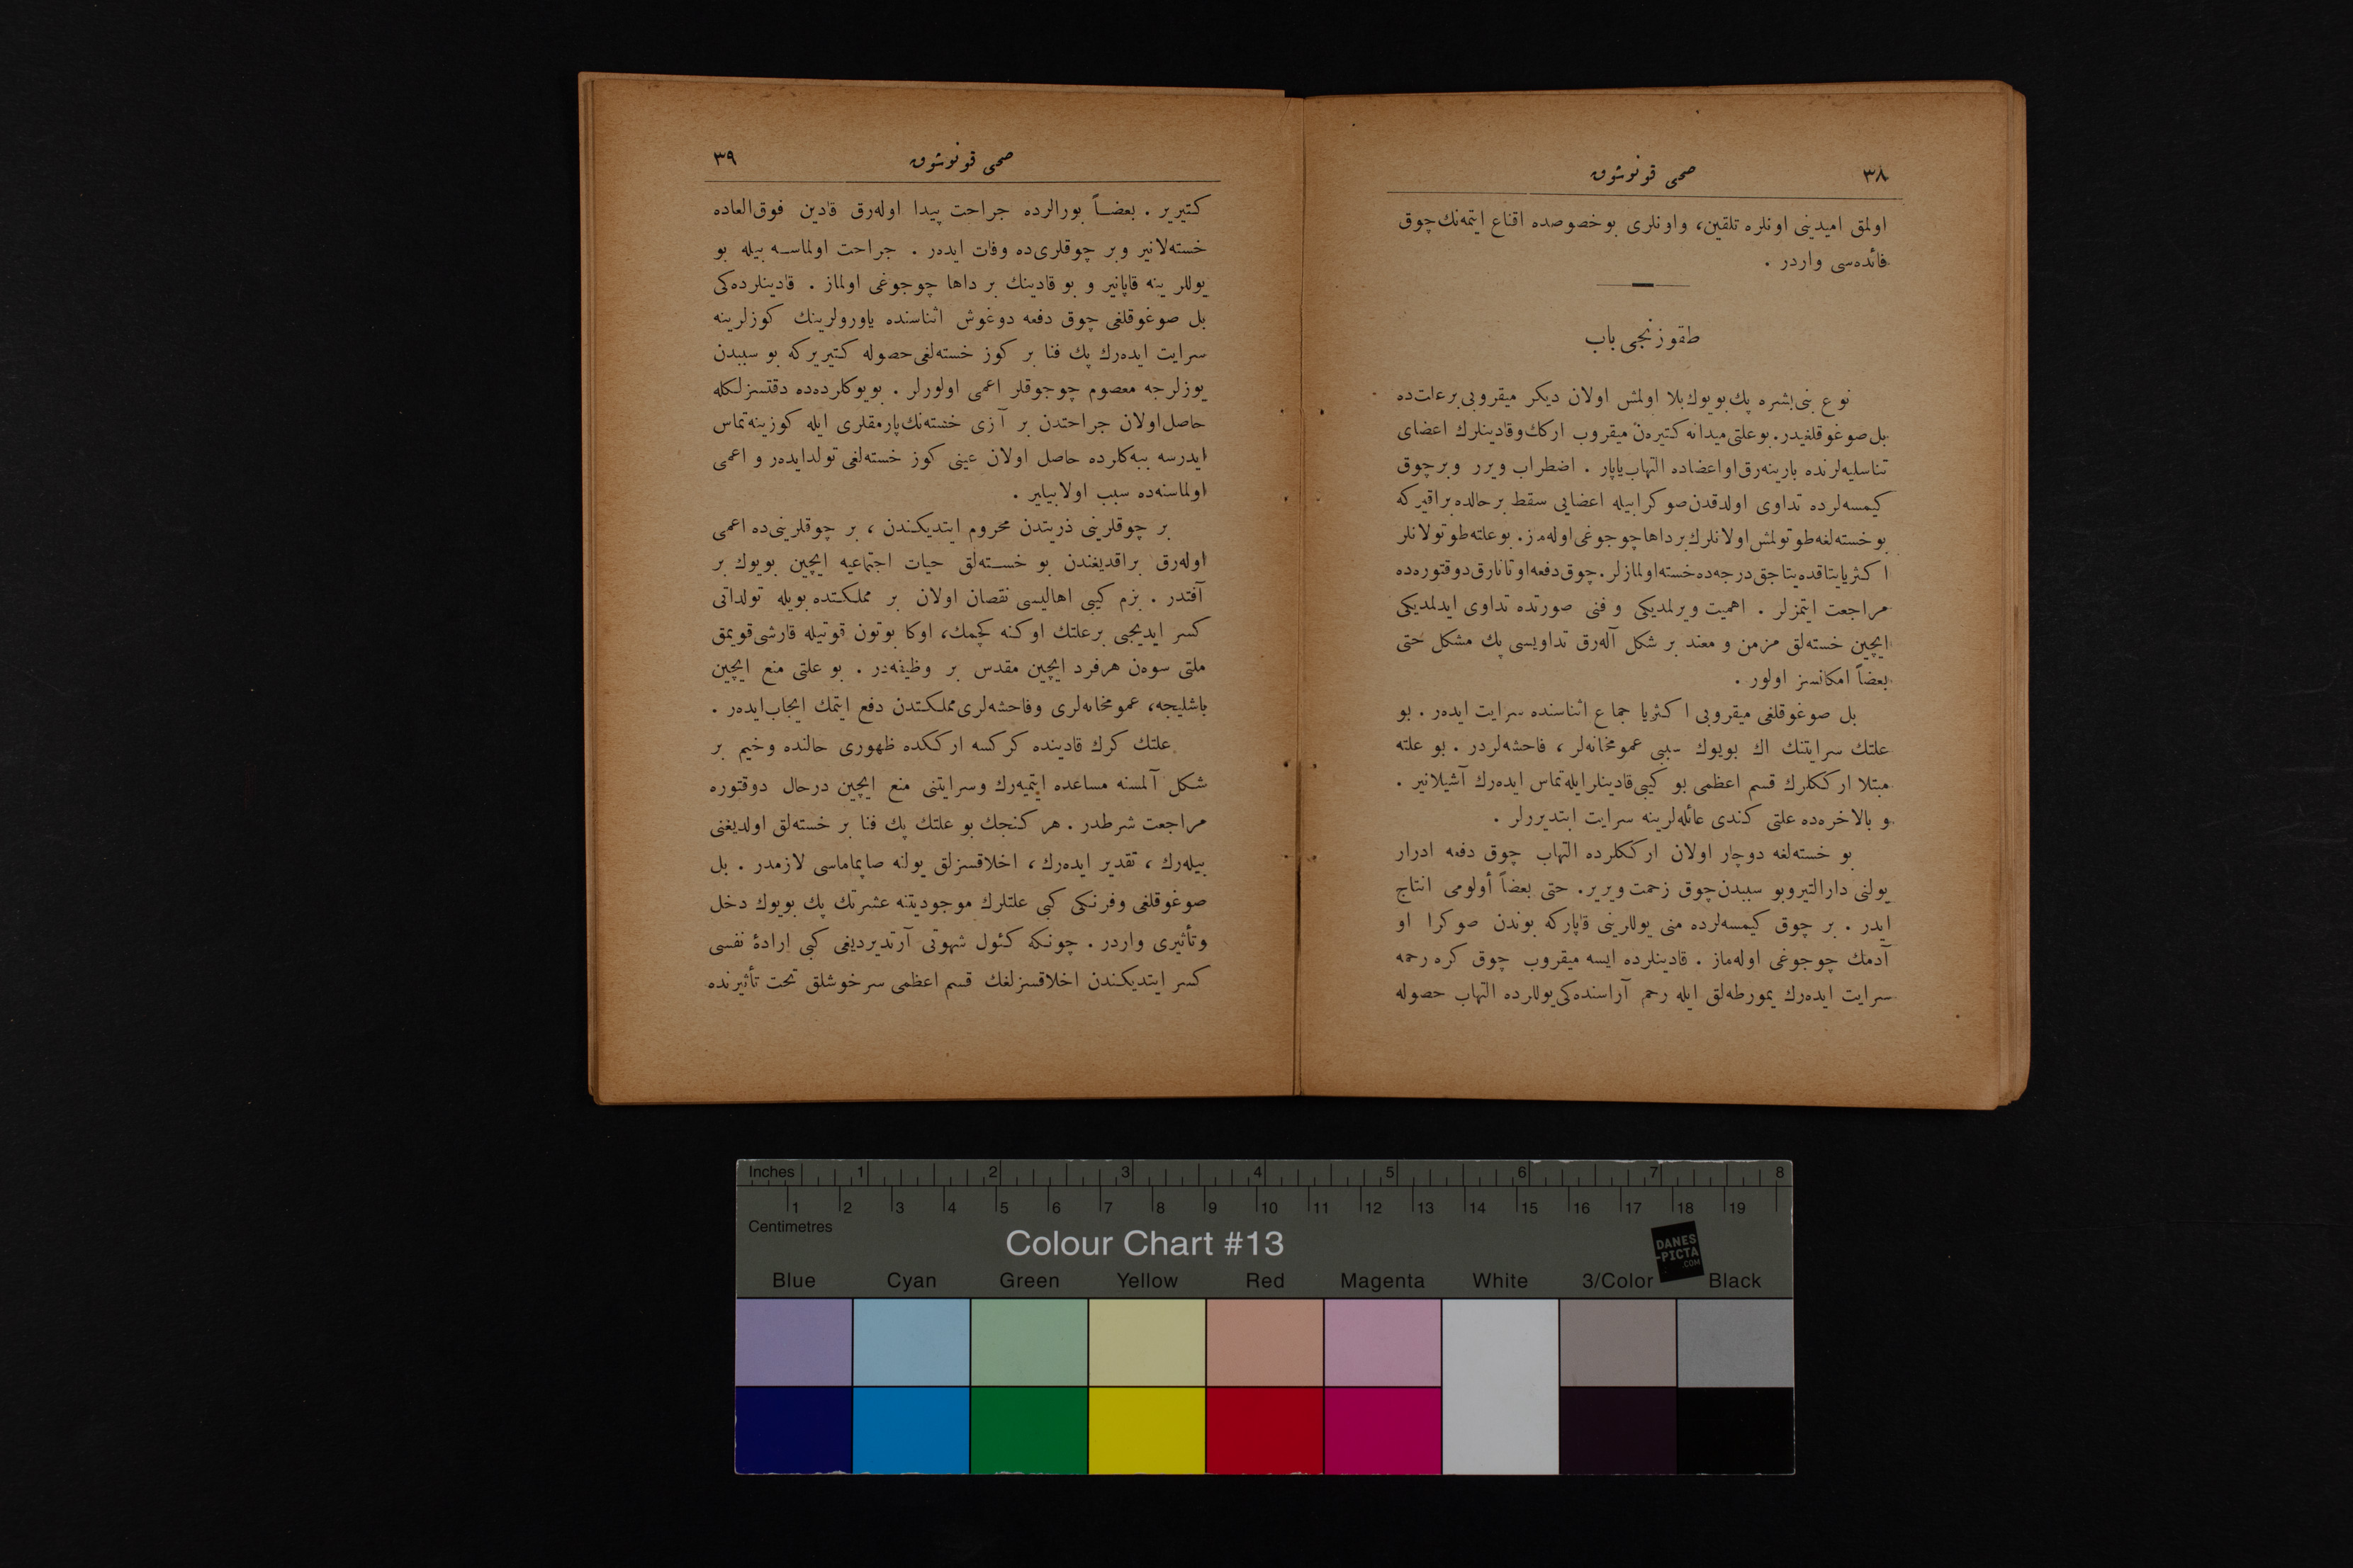 ٣٨
صحی قونوشوق
اولمق امیدینی اونلره تلقین، واونلری بوخصوصده اقناع ایتمه‌نك چوق
فائده‌سی واردر .
طقوزنجی باب
نوع بنی‌بشره پك بویوك بلا اولمش اولان دیكر میقروبی برعلت‌ده
بل صوغوقلغیدر. بوعلتی میدانه كتیره‌ن میقروب اركك وقادینلرك اعضای
تناسلیه‌لرنده بارینه‌رق او اعضاده التهاب یاپار . اضطراب ویرر وبرچوق
كیمسه‌لرده تداوی اولدقدن صوكرا بیله اعضایی سقط برحالده براقیركه
بو خسته‌لغه طوتولمش اولانلرك برداها چوجوغی اوله‌مز. بوعلته طوتولانلر
اكثریا یتاقده یتاجق درجه‌ده خسته اولمازلر. چوق دفعه اوتانارق دوقتوره‌ده
مراجعت ایتمزلر . اهمیت ویرلمدیكی و فنی صورتده تداوی ایدلمدیكی
ایچین خسته‌لق مزمن و معند بر شكل آله‌رق تداویسی پك مشكل حتی
بعضاً امكانسز اولور .
بل صوغوقلغی میقروبی اكثریا جماع اثناسنده سرایت ایده‌ر . بو
علتك سرایتنك اك بویوك سببی عمومخانه‌لر ، فاحشه‌لردر . بو علته
مبتلا ارككلرك قسم اعظمی بو كیبی قادینلر ایله تماس ایده‌رك آشیلانیر .
و بالاخره‌ده علتی كندی عائله‌لرینه سرایت ایتدیررلر .
بو خسته‌لغه دوچار اولان ارككلرده التهاب چوق دفعه ادرار
یولنی دارالتیر وبو سببدن چوق زحمت ویریر. حتی بعضاً أولومی انتاج
ایدر . بر چوق كیمسه‌لرده منی یوللرینی قاپاركه بوندن صوكرا او
آدمك چوجوغی اوله‌ماز . قادینلرده ایسه میقروب چوق كره رحمه
سرایت ایده‌رك یمورطه‌لق ایله رحم آراسنده‌كی یوللرده التهاب حصوله
صحی قونوشوق
٣٩
كتیریر . بعضاً بورالرده جراحت پیدا اوله‌رق قادین فوق‌العاده
خسته‌لانیر وبر چوقلری‌ده وفات ایده‌ر . جراحت اولماسـه بیله بو
یوللر ینه قاپانیر و بو قادینك بر داها چوجوغی اولماز . قادینلرده‌كی
بل صوغوقلغی چوق دفعه دوغوش اثناسنده یاورولرینك كوزلرینه
سرایت ایده‌رك پك فنا بر كوز خسته‌لغی حصوله كتیریركه بو سببدن
یوزلرجه معصوم چوجوقلر اعمی اولورلر . بویوكلرده‌ده دقتسزلكله
حاصل اولان جراحتدن بر آزی خسته‌نك پارمقلری ایله كوزینه تماس
ایدرسه ببه‌كلرده حاصل اولان عینی كوز خسته‌لغی تولد ایده‌ر و اعمی
اولماسنه‌ده سبب اولابیلیر .
بر چوقلرینی ذریتدن محروم ایتدیكندن ، بر چوقلرینی‌ده اعمی
اوله‌رق براقدیغندن بو خسـته‌لق حیات اجتماعیه ایچین بویوك بر
آفتدر . بزم كیبی اهالیسی نقصان اولان بر مملكتده بویله تولداتی
كسر ایدیجی برعلتك اوكنه كچمك، اوكا بوتون قوتیله قارشی قویمق
ملتی سوه‌ن هرفرد ایچین مقدس بر وظیفه‌در . بو علتی منع ایچین
باشلیجه، عمومخانه‌لری وفاحشه‌لری مملكتدن دفع ایتمك ایجاب ایده‌ر .
علتك كرك قادینده كركسه ارككده ظهوری حالنده وخیم بر
شكل آلمسنه مساعده ایتمیه‌رك وسرایتنی منع ایچین درحال دوقتوره
مراجعت شرطدر . هر كنجك بو علتك پك فنا بر خسته‌لق اولدیغنی
بیله‌رك ، تقدیر ایده‌رك ، اخلاقسزلق یولنه صاپماماسی لازمدر . بل
صوغوقلغی وفرنكی كبی علتلرك موجودیتنه عشرتك پك بویوك دخل
وتأثیری واردر . چونكه كئول شهوتی آرتدیردیغی كبی ارادۀ نفسی
كسر ایتدیكندن اخلاقسزلغك قسم اعظمی سرخوشلق تحت تأثیرنده
Inches 1 2 3 4 5 6 7 8
1 2 3 4 5 6 7 8 9 10 11 12 13 14 15 16 17 18 19
Centimetres
Colour Chart #13
DANES
-PICTA
.COM
Blue Cyan Green Yellow Red Magenta White 3/Color Black